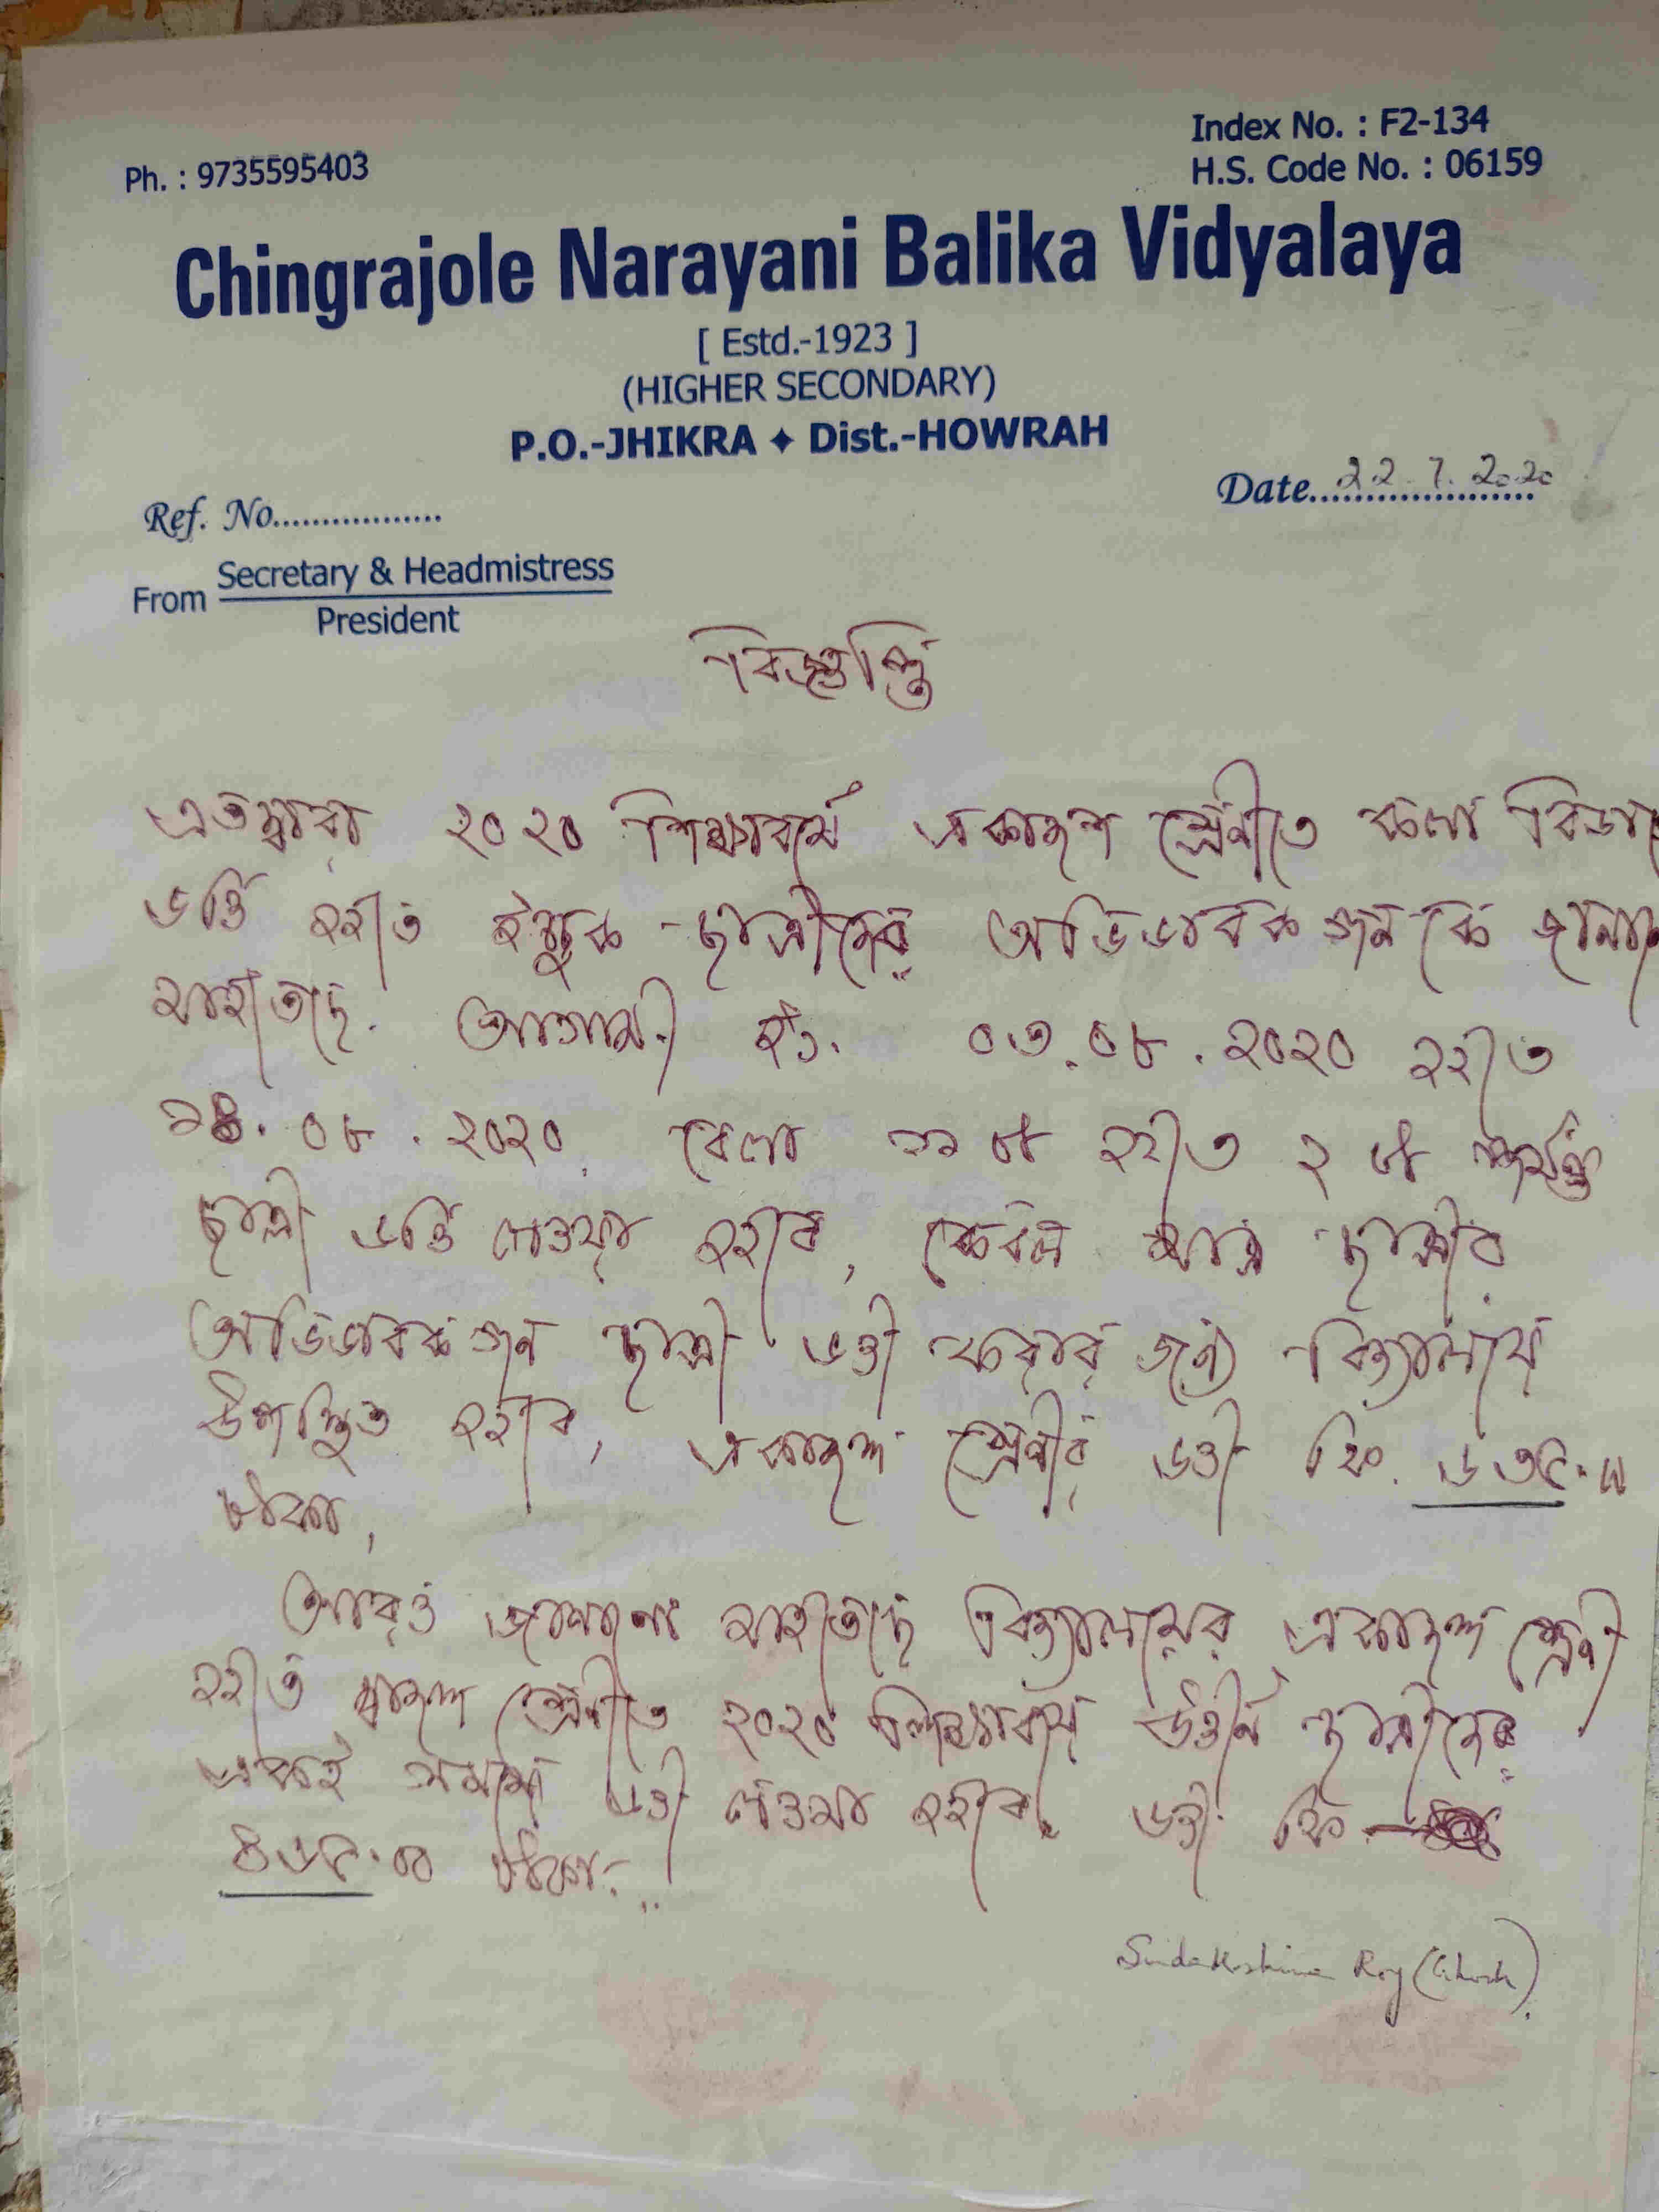 Index No. : F2-134
Ph. : 9735595403
H.S. Code No. : 06159
Chingrajole Narayani Balika Vidyalaya
[ Estd.-1923 ]
(HIGHER SECONDARY)
P.O.-JHIKRA ✦ Dist.-HOWRAH
Date....................22.7.2020
Ref. No.................
From Secretary & Headmistress
President
বিজ্ঞপ্তি
এতদ্বারা ২০২০ শিক্ষাবর্ষে একাদশ শ্রেণীতে কলা
ভর্ত্তি হইতে ইচ্ছুক ছাত্রীদের অভিভাবকগনকে
যাইতেছে. আগামী ইং. ০৩.০৮.২০২০ হইতে
১৪.০৮.২০২০. বেলা ১১ টা হইতে ২ টা পর্যন্ত
ছাত্রী ভর্ত্তি নেওয়া হইবে, কেবল মাত্র ছাত্রীর
অভিভাবকগন ছাত্রী ভর্ত্তী করার জন্যে বিদ্যালয়ে
উপস্থিত হইবে, একাদশ শ্রেণীর ভর্ত্তী ফি.
টাকা,
আরও জানানো যাইতেছে বিদ্যালয়ের একাদশ শ্রেনী
হইতে দ্বাদশ শ্রেণীতে ২০২০ শিক্ষাবর্ষে উত্তীর্ন ছাত্রীদের
একই সময়ে ভর্ত্তী নেওয়া হইবে. ভর্ত্তী ফি.
৪৬৫.০০ টাকা.
Roy (Ghosh)